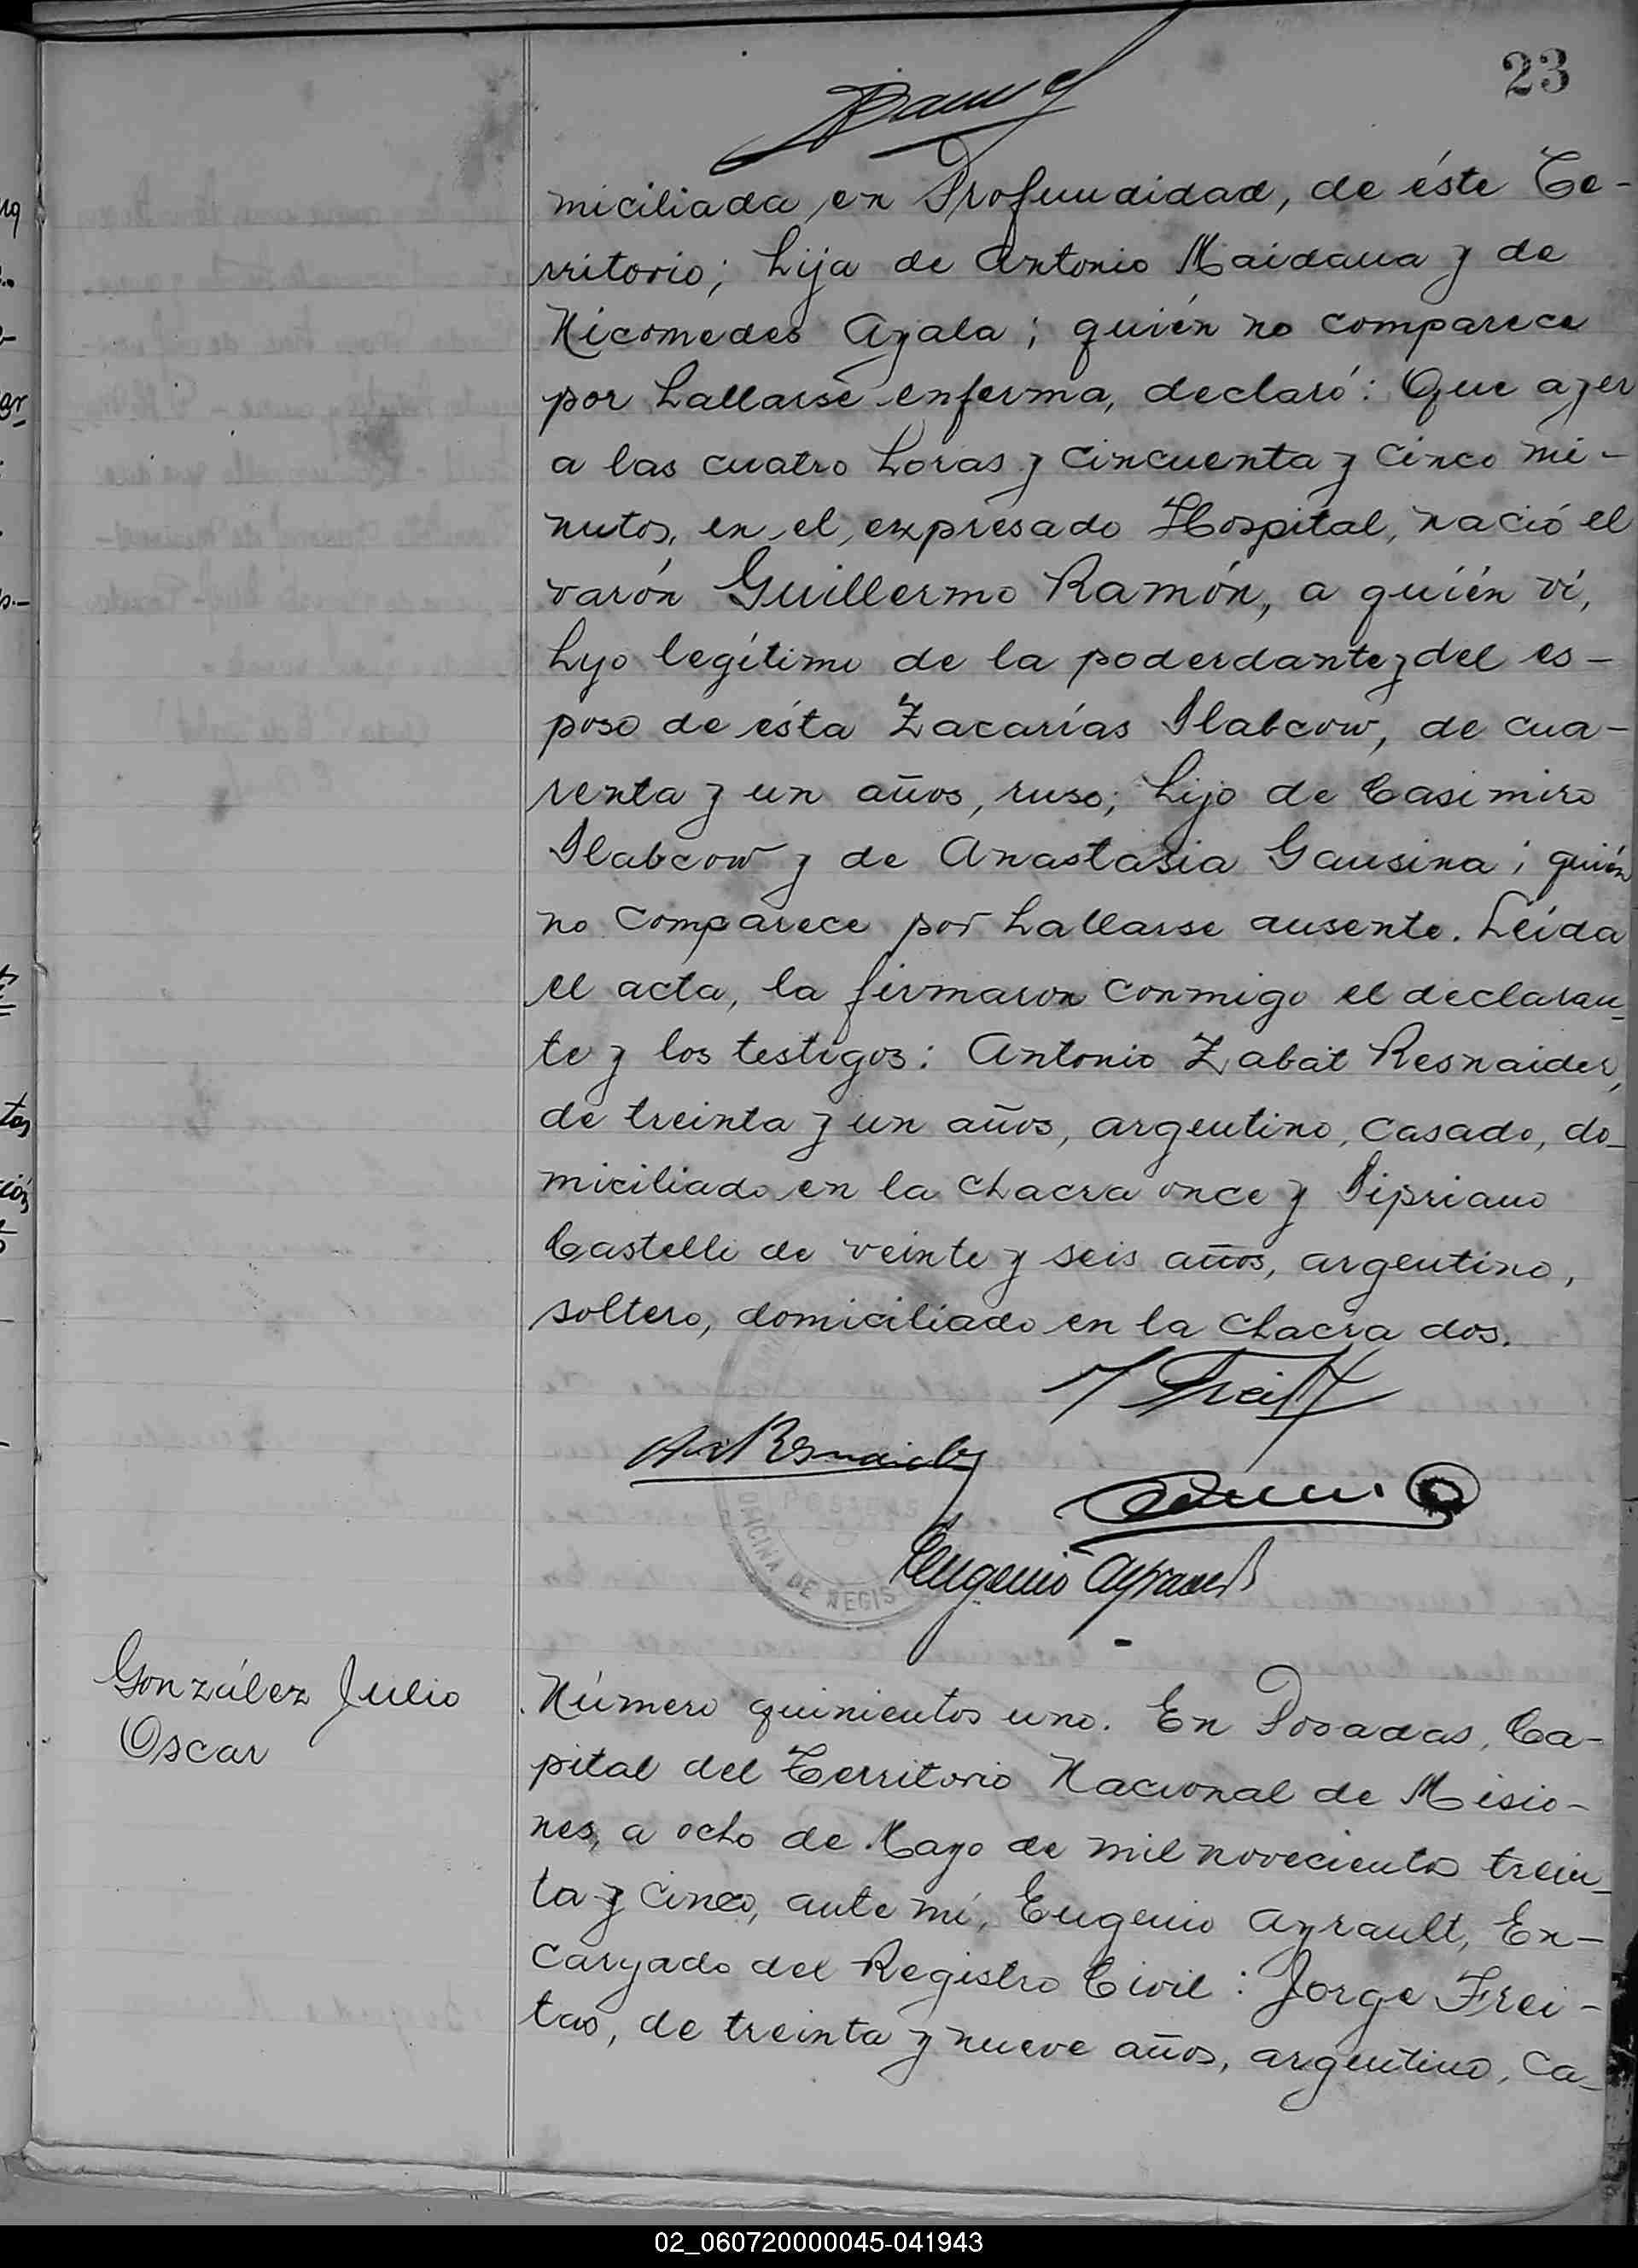 23
miciliada en Profundidad, de éste Te-
rritorio; hija de Antonio Maidana y de
Nicomedes Ayala; quién no comparece
por hallarse enferma, declaró: Que ayer
a las cuatro horas y cincuenta y cinco mi-
nutos, en el expresado Hospital, nació el
varón Guillermo Ramón, a quién ví,
hijo legítimo de la poderdante y del es-
poso de ésta Zacarías Slabcow, de cua-
renta y un años, ruso; hijo de Casimiro
Slabcow y de Anastasia Gausina; quién
no comparece por hallarse ausente. Leída
el acta, la firmaron conmigo el declaran-
te y los testigos: Antonio Zabat Resnaider,
de treinta y un años, argentino, casado, do-
miciliado en la chacra once y Sipriano
Castelli de veinte y seis años, argentino,
soltero, domiciliado en la chacra dos.
POSADAS
OFICINA DE REGIS
Eugenio Ayrault
González Julio
Oscar
Número quinientos uno. En Posadas, Ca-
pital del Territorio Nacional de Misio-
nes, a ocho de Mayo de mil novecientos trein-
ta y cinco, ante mí, Eugenio Ayrault, En-
cargado del Registro Civil: Jorge Frei-
tas, de treinta y nueve años, argentino, ca-
02_060720000045-041943